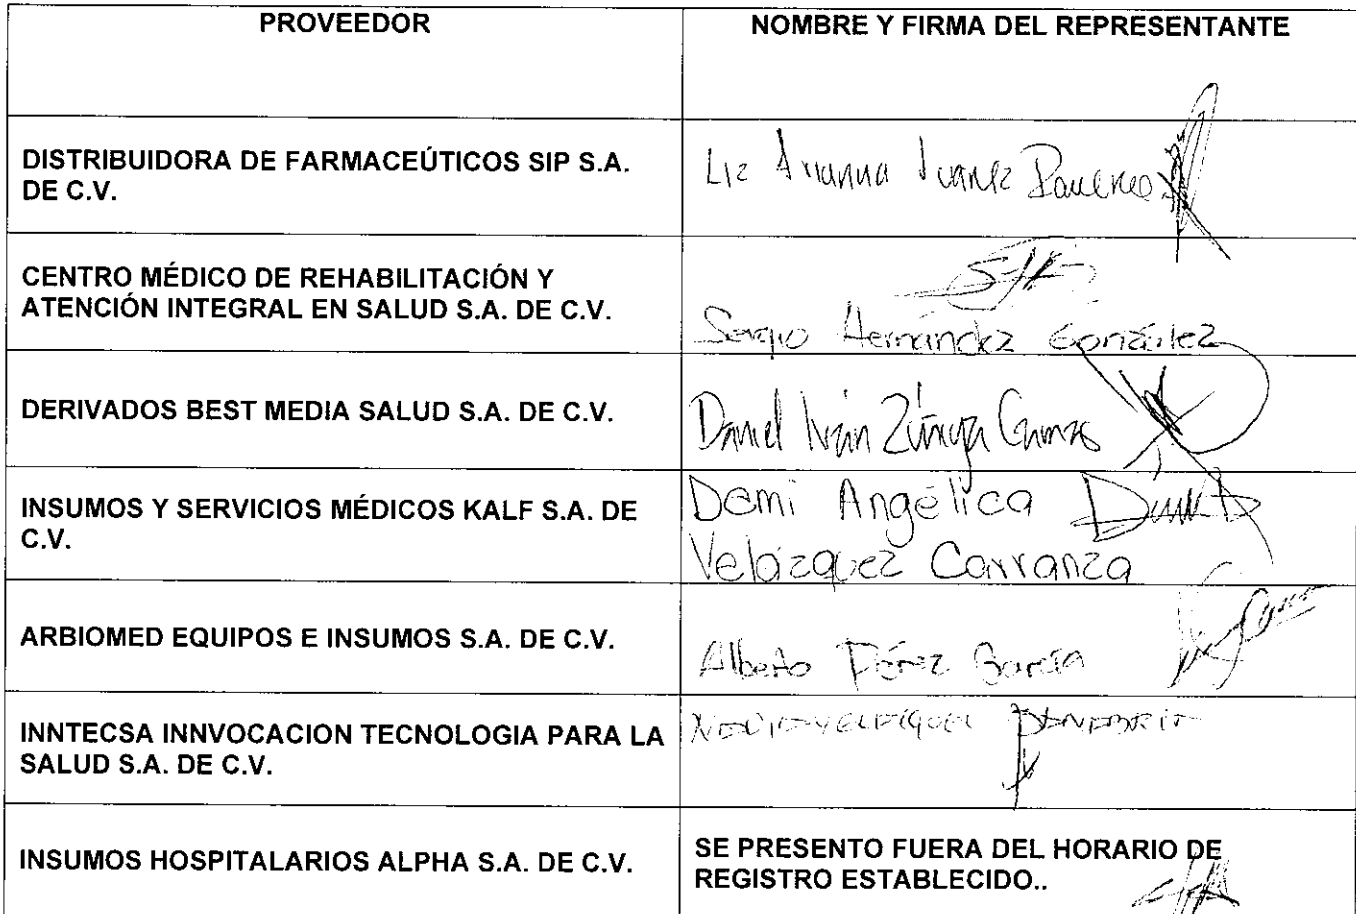 PROVEEDOR
NOMBRE Y FIRMA DEL REPRESENTANTE
DISTRIBUIDORA DE FARMACEÚTICOS SIP S.A.
DE C.V.
Liz Arianna Juarez
CENTRO MÉDICO DE REHABILITACIÓN Y
ATENCIÓN INTEGRAL EN SALUD S.A. DE C.V.
Sergio Hernández González
DERIVADOS BEST MEDIA SALUD S.A. DE C.V.
Daniel Iván Zúñiga
INSUMOS Y SERVICIOS MÉDICOS KALF S.A. DE
C.V.
Demi Angélica
Velázquez Carranza
ARBIOMED EQUIPOS E INSUMOS S.A. DE C.V.
Alberto Pérez García
INNTECSA INNVOCACION TECNOLOGIA PARA LA
SALUD S.A. DE C.V.
INSUMOS HOSPITALARIOS ALPHA S.A. DE C.V.
SE PRESENTO FUERA DEL HORARIO DE
REGISTRO ESTABLECIDO..